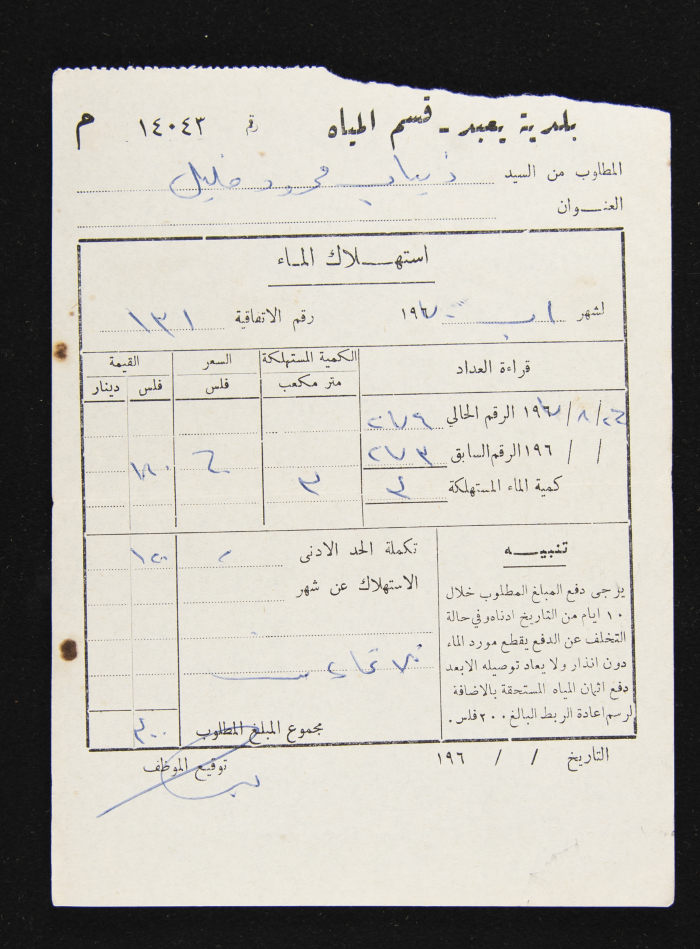 بلدية يعبد - قسم المياه رقم ١٤٠٤٣ م
المطلوب من السيد ذياب محمود خليل
العنـــوان
استهـــلاك المـاء
لشهر اب ١٩٦٧ رقم الاتفاقية ١٣١
قراءة العداد الكمية المستهلكة السعر القيمة
متر مكعب فلس فلس دينار
٢٤ / ٨ / ١٩٦٧ الرقم الحالي ٢٧٦
/ / ١٩٦ الرقم السابق ٢٧٣ ١٨٠
كمية الماء المستهلكة ٣ ٣
تنبيـــه
يرجى دفع المبلغ المطلوب خلال
١٠ ايام من التاريخ ادناه وفي حالة
التخلف عن الدفع يقطع مورد الماء
دون انذار ولا يعاد توصيله الا بعد
دفع اثمان المياه المستحقة بالاضافة
لرسم اعادة الربط البالغ ٢٠٠ فلس .
تكملة الحد الادنى ١٢٠
الاستهلاك عن شهر
مجموع المبلغ المطلوب ٣٠٠
التاريخ / / ١٩٦ توقيع الموظف